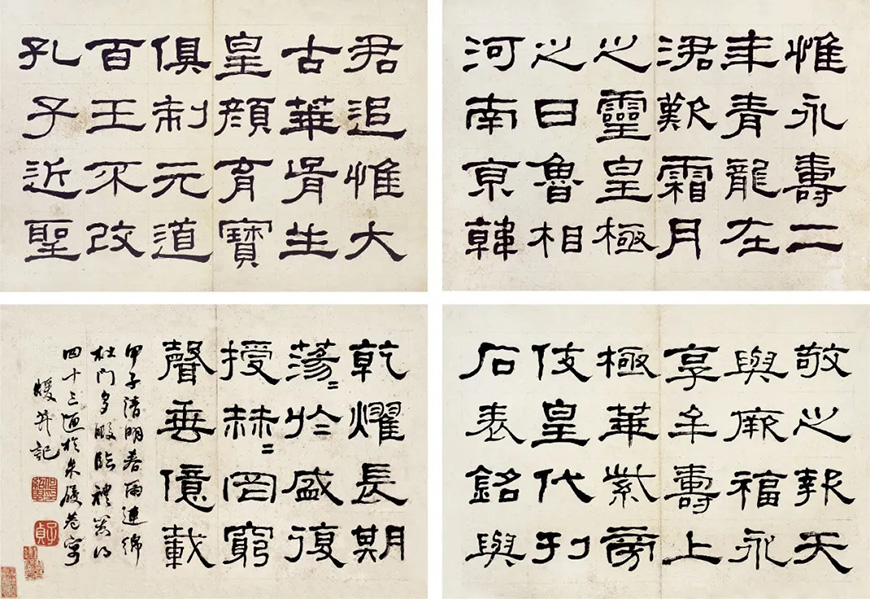 惟永壽二
年青龍在
涒歎霜月
之靈皇極
之日魯相
河南京韓
君追惟大
古華胥生
皇顏育寶
俱制元道
百王不改
孔子近聖
敬之報天
與厥福永
享牟壽上
極華紫旁
伎皇代刊
石表銘與
乾燿長期
蕩〻於盛復
授赫〻罔窮
聲垂億載
甲子清明春雨連綿
杜門多暇臨禮器得
四十三通於朱履巷寓
記